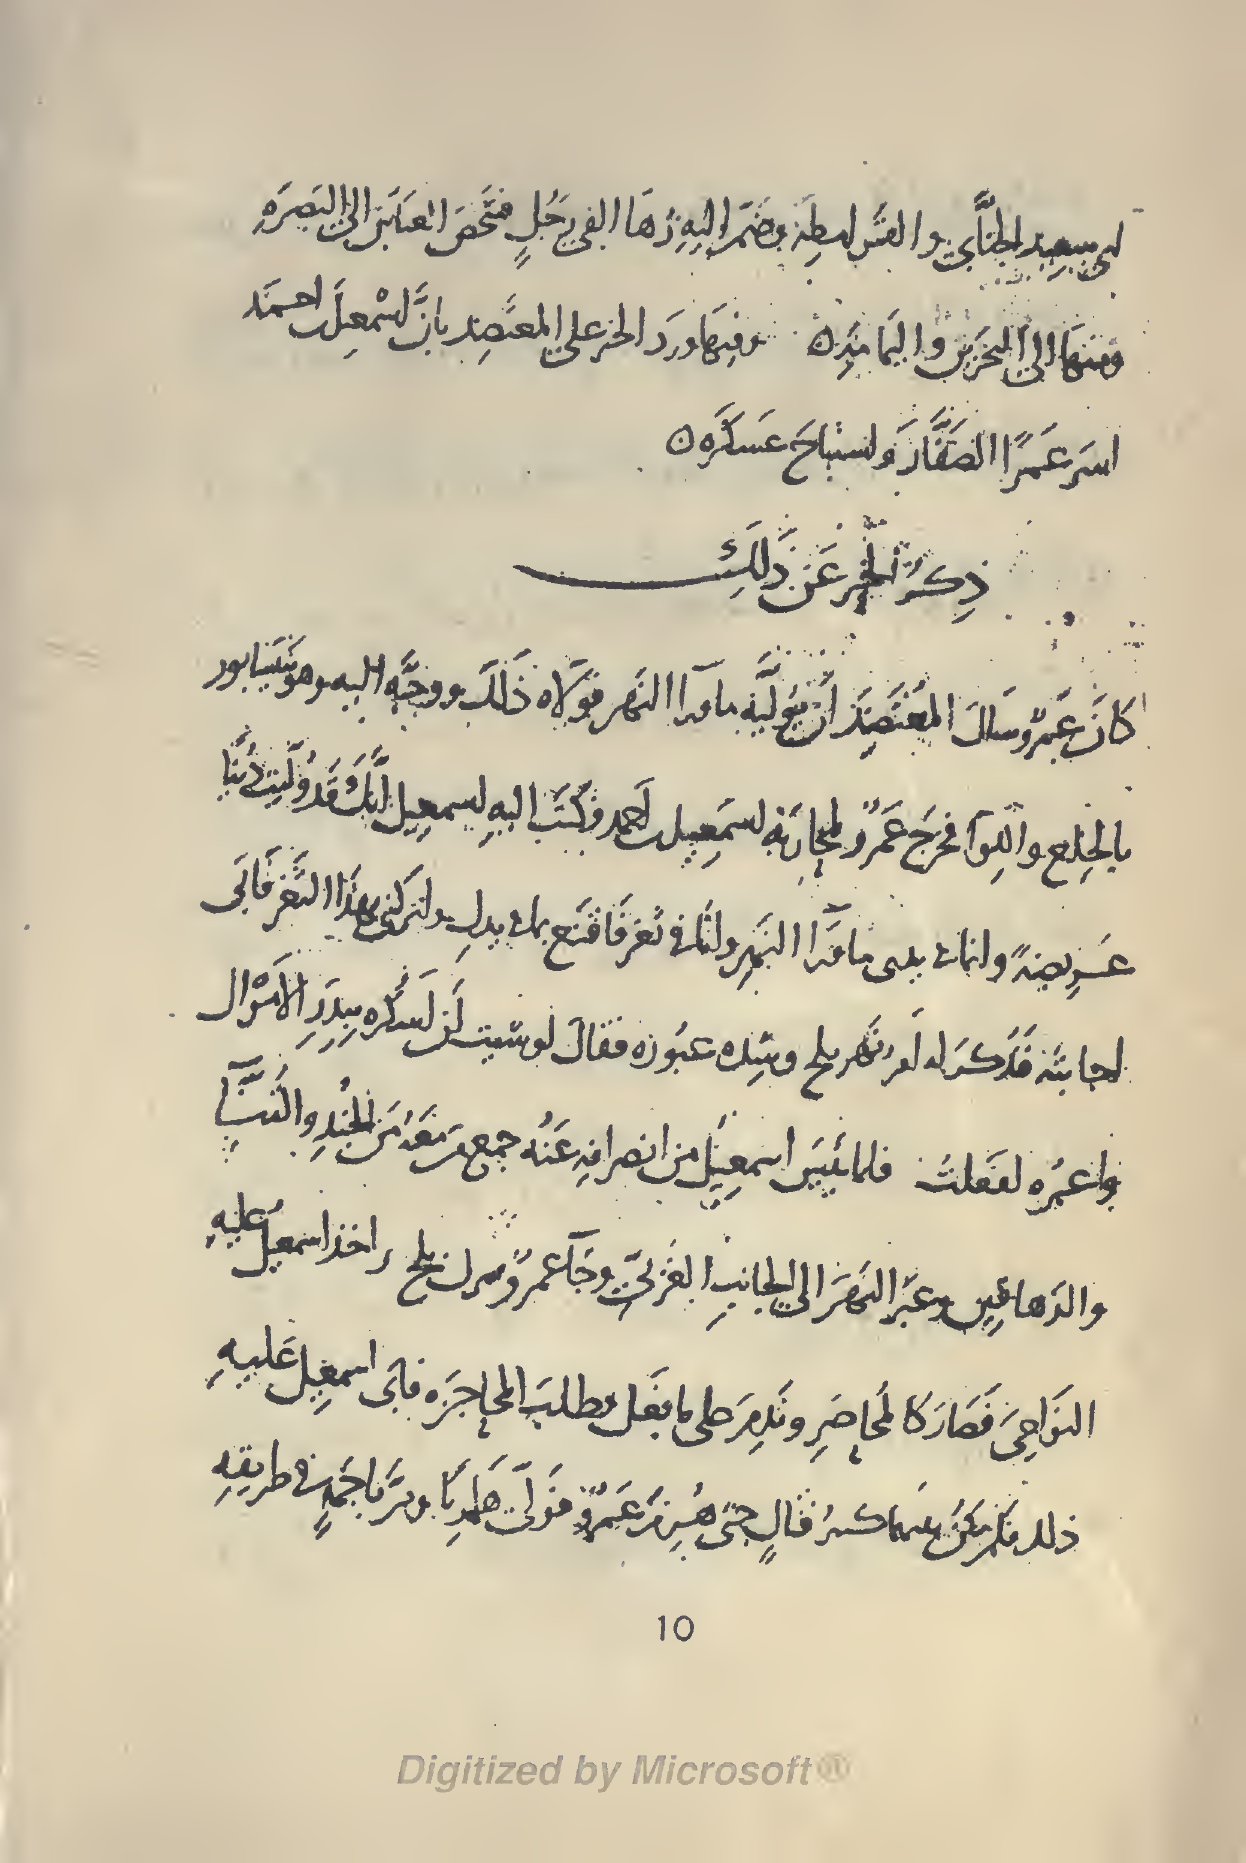 ابى سعيد الجنّابى والقرامطة وضمّ اليه زهاء الفى رجلٍ فشخص العباس الى البصره
ومنها الى البحرين واليمامة ۝ وفيها ورد الخبر على المعتضد بانّ اسْمعيل احمد
اسرَ عَمرًا الصَفَّارَ واستباحَ عسكَره ۝
ذِكرُ الخبر عَن ذَلكَ
كانَ عَمرٌو سَالَ المُعْتَضِدَ انْ يُوَلّيَه ما ورآ النَهر فوَلاه ذَلكَ ووجَّه اليه وهو بنَيسابور
بالخِلع واللِوآ فخرجَ عَمرٌو لمحاربَةِ اسمَعِيل احمد فكتَبَ اليهِ اسمعِيل انَّكَ قَد وُلّيتَ دُنيَا
عَرِيضةً وانما فى يدى ما ورَآ النَهرِ وانَا فى ثَغر فَاقنَع بما فى يدكِ واتركنى بهَذا الثَغر فَابَى
اجابتَه فَذُكرَ له امرُ نَهر بلخ وشِده عبُوره فقالَ لو شيت ان اسَكُره ببِدَرِ الاَمْوال
واعبُره لفَعلتُ فلما ئَيسَ اسمعِيلُ من انصرافِه عَنْه جمع مَن مَعَهُ مَن الجُندِ والتُنَّآ
والدَهاقِين وعبَر النَهَرَ الى الجانبِ الغَربىّ وجَآ عمرٌو فنزل بلخ واخذ اسمعيلُ عليهِ
النَواحِىَ فَصَارَ كالمُحاصَرِ ونَدِمَ على ما فعَل وطلبَ المحاجَزَه فابَى اسمعِيل عَليهِ
ذلك فلَم يكنُ بينهما كبيرُ قتالٍ حتى هُزمَ عَمرٌو فوَلّى هَاربًا ومرَّ باجَمهٍ فى طريقهِ
10
Digitized by Microsoft®